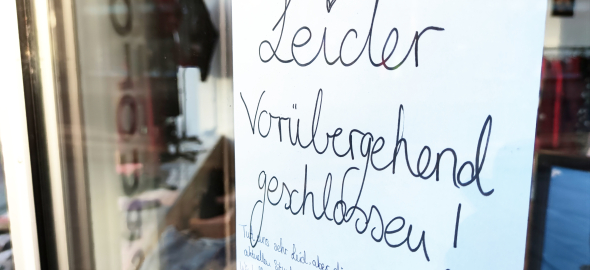 Leider
Vorübergehend
geschlossen!
Tut uns sehr Leid, aber die
aktuellen